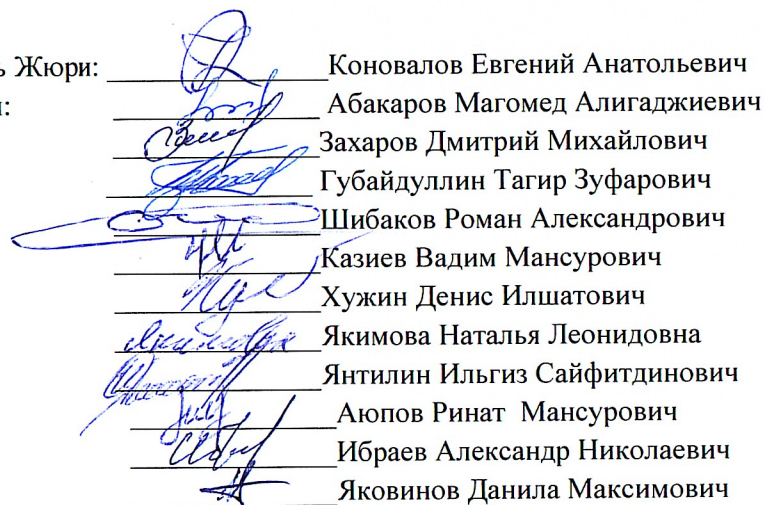 ь Жюри: Коновалов Евгений Анатольевич
и: Абакаров Магомед Алигаджиевич
Захаров Дмитрий Михайлович
Губайдуллин Тагир Зуфарович
Шибаков Роман Александрович
Казиев Вадим Мансурович
Хужин Денис Илшатович
Якимова Наталья Леонидовна
Янтилин Ильгиз Сайфитдинович
Аюпов Ринат Мансурович
Ибраев Александр Николаевич
Яковинов Данила Максимович